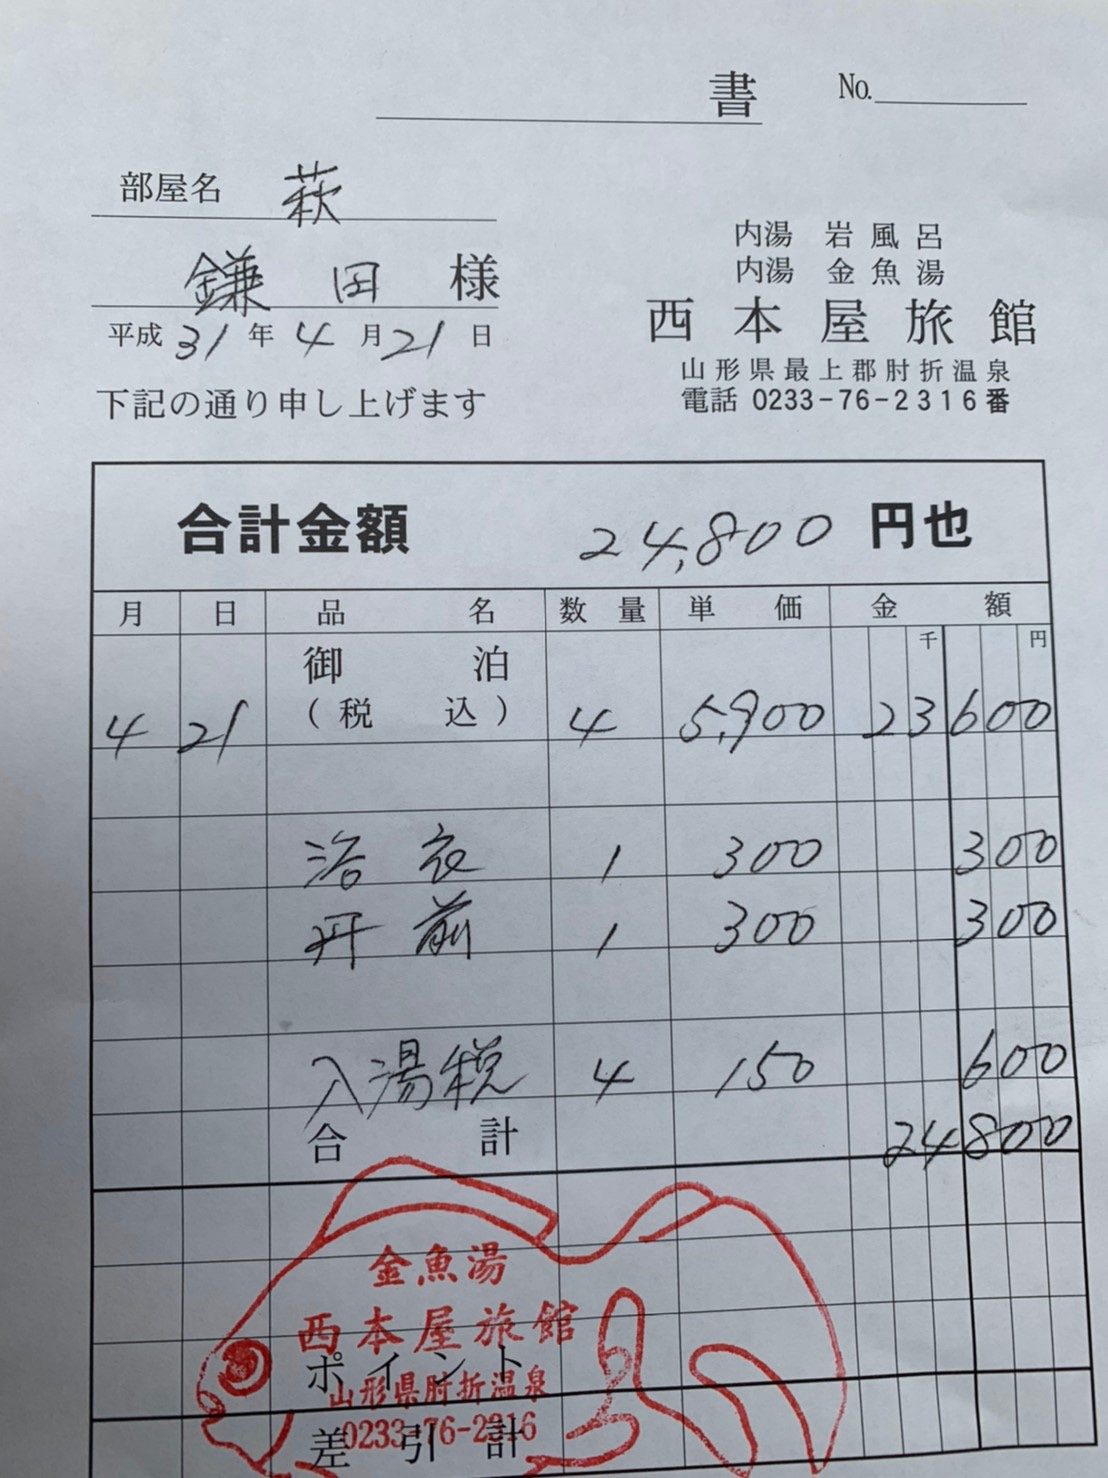 書 No.
部屋名 萩
鎌田 様
平成31年4月21日
下記の通り申し上げます
内湯 岩風呂
内湯 金魚湯
西本屋旅館
山形県最上郡肘折温泉
電話 0233-76-2316番
合計金額 24,800 円也
月 日 品名 数量 単価 金額
千 円
御泊
4 21 (税込) 4 5,900 23600
浴衣 1 300 300
丹前 1 300 300
入湯税 4 150 600
合計 24800
金魚湯
西本屋旅館
ポイント
山形県肘折温泉
0233-76-2316
差引計